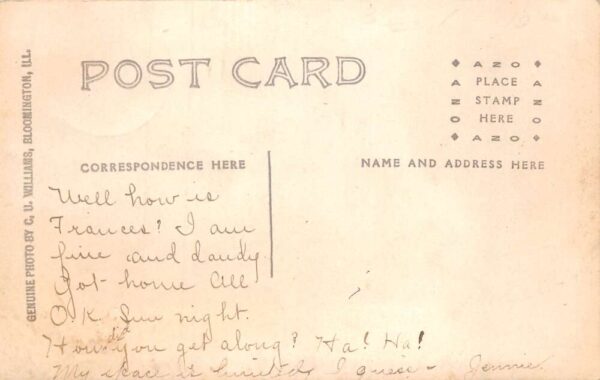 POST CARD
AZO
A PLACE A
Z STAMP Z
O HERE O
AZO
GENUINE PHOTO BY C. U. WILLIAMS, BLOOMINGTON, ILL.
CORRESPONDENCE HERE
NAME AND ADDRESS HERE
Well how is
Frances? I am
fine and dandy
Got home All
O.K. Sun night.
How did you get along? Ha! Ha!
My space is limited, I guess - Jennie.